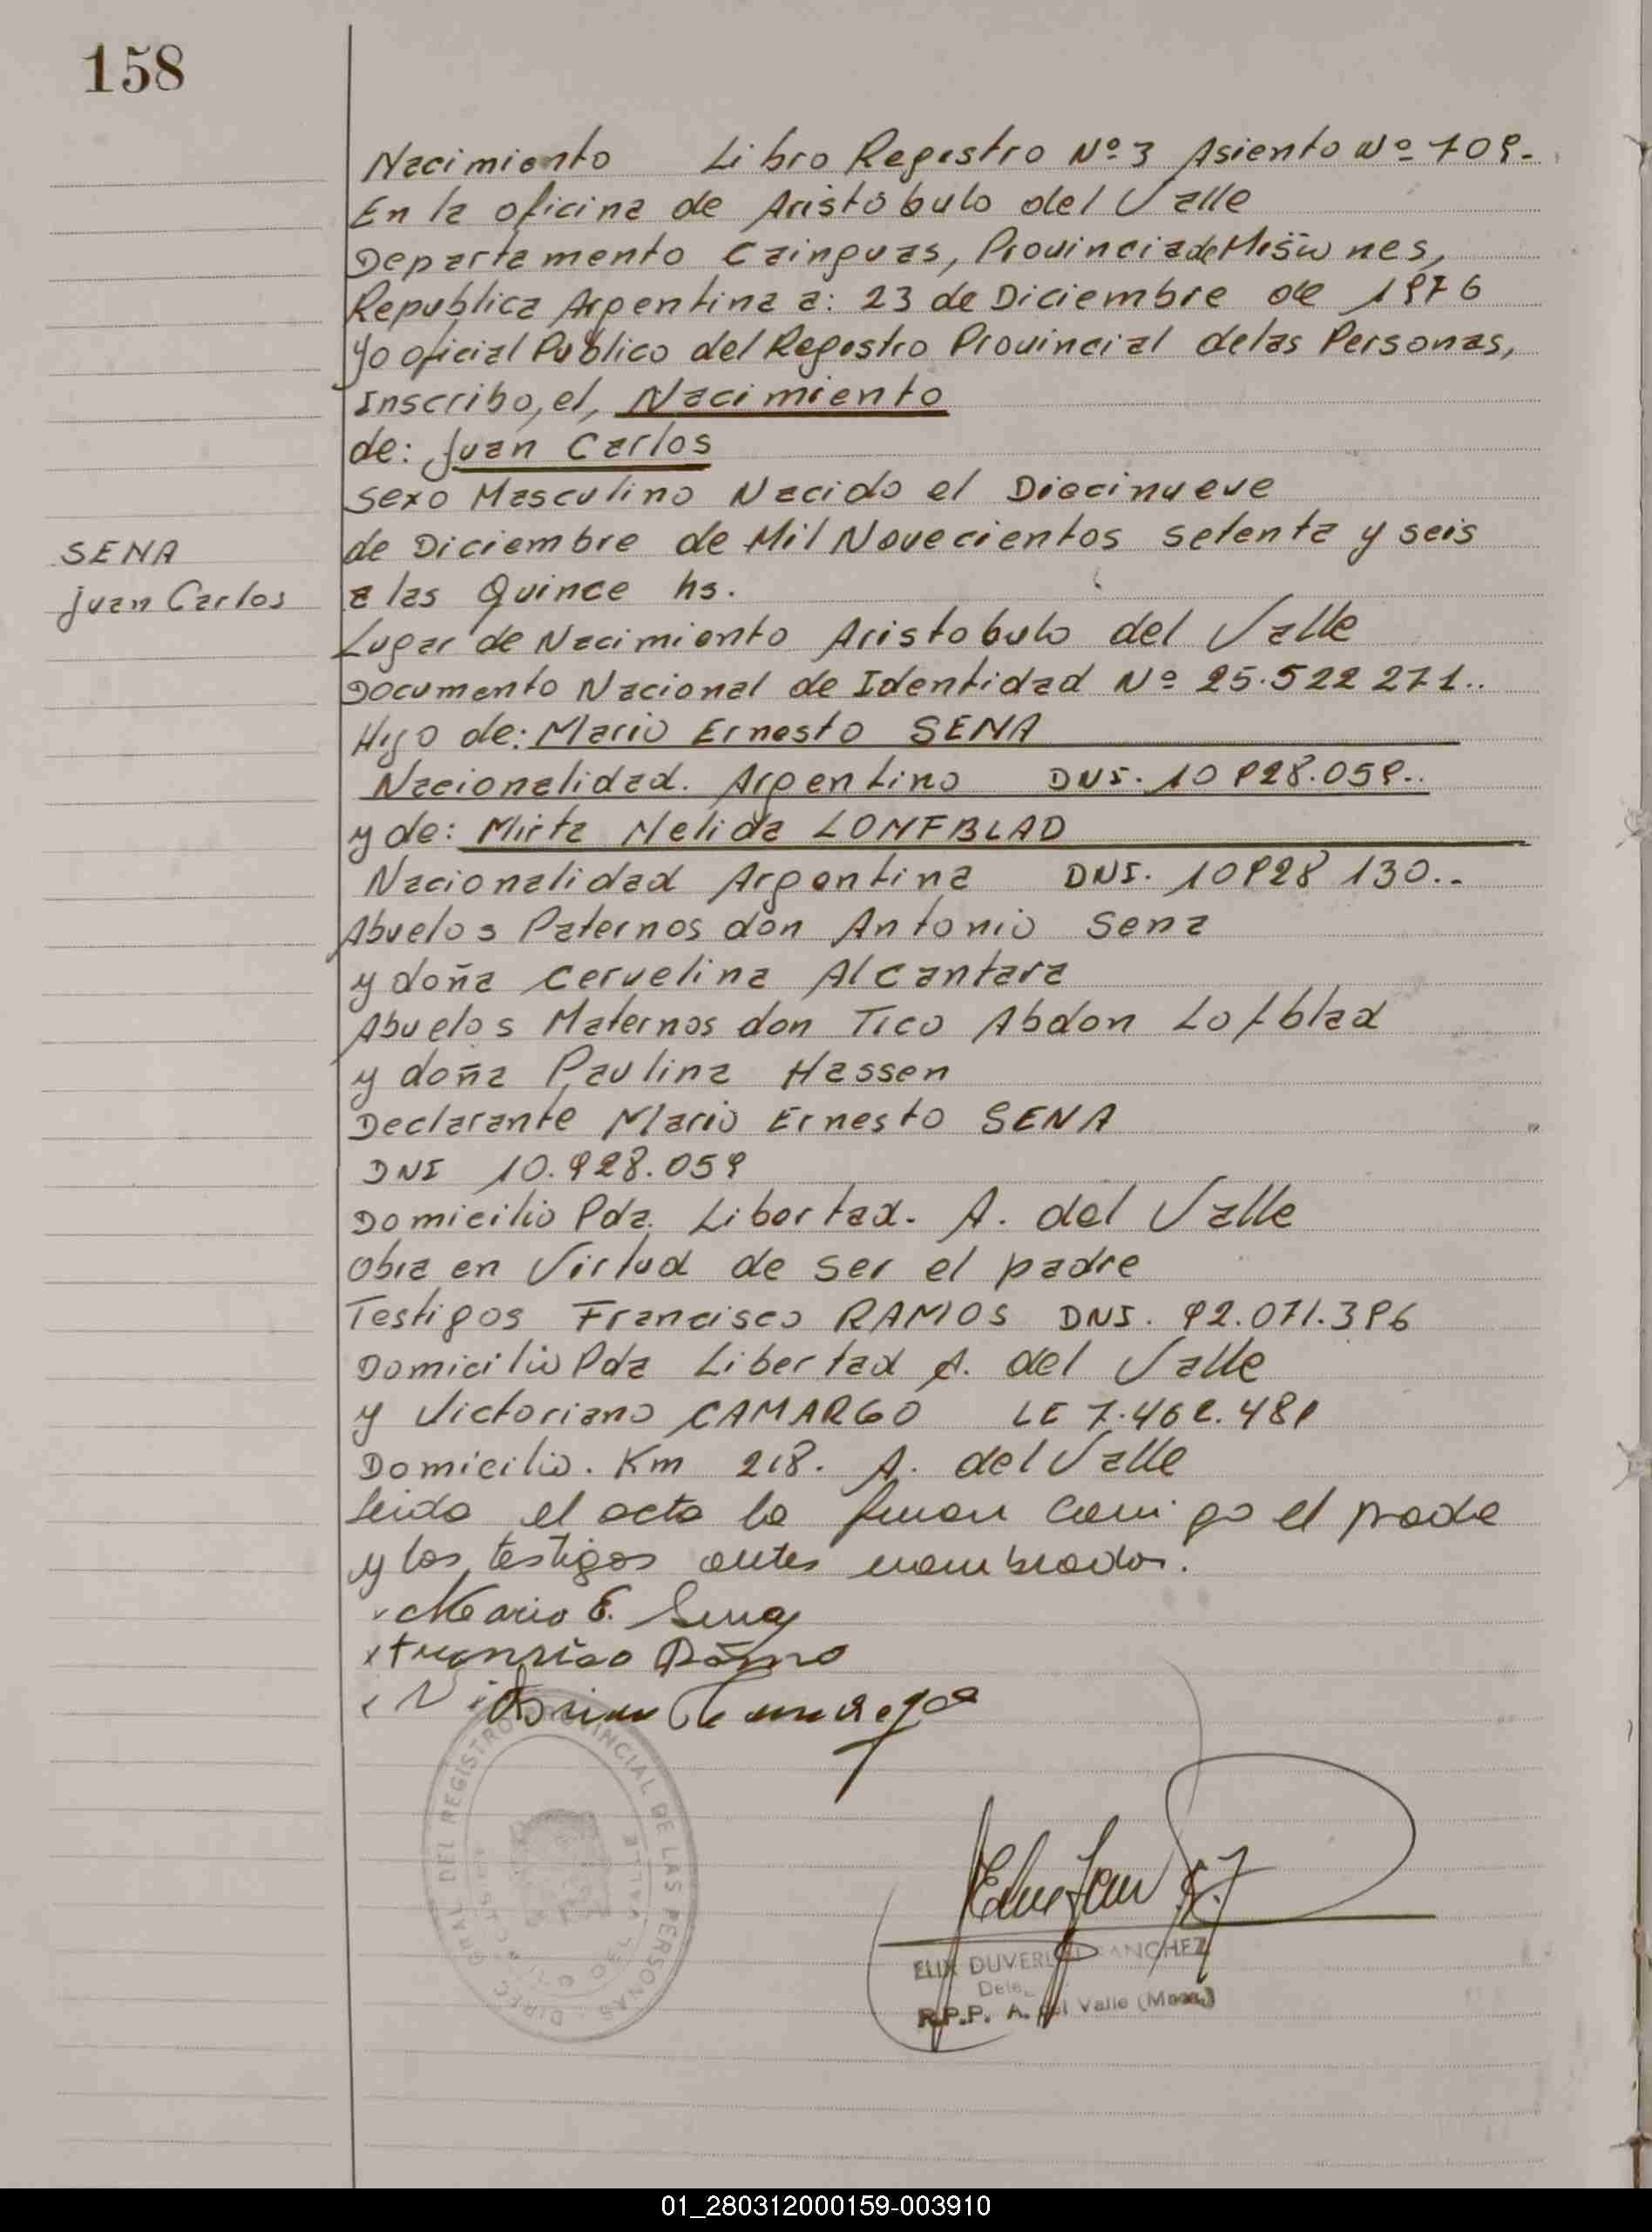 158
Nacimiento Libro Registro Nº 3 Asiento Nº 709.-
En la oficina de Aristóbulo del Valle
Departamento Cainguas, Provincia de Misiones,
Republica Argentina a: 23 de Diciembre de 1976
yo oficial Publico del Registro Provincial de las Personas,
Inscribo, el, Nacimiento
de: Juan Carlos
Sexo Masculino Nacido el Diecinueve
SENA
Juan Carlos
de Diciembre de Mil Novecientos setenta y seis
a las Quince hs.
Lugar de Nacimiento Aristobulo del Valle
Documento Nacional de Identidad Nº 25.522 271..
Hijo de: Mario Ernesto SENA
Nacionalidad. Argentino DNI. 10 928.059..
y de: Mirta Nelida LONFBLAD
Nacionalidad Argentina DNI. 10928 130..
Abuelos Paternos don Antonio Sena
y doña Cervelina Alcantara
Abuelos Maternos don Tico Abdon Lofblad
y doña Paulina Hassen
Declarante Mario Ernesto SENA
DNI 10.928.059
Domicilio Pda. Libertad. A. del Valle
Obra en Virtud de ser el padre
Testigos Francisco RAMOS DNI. 92.071.396
Domicilio Pda Libertad A. del Valle
y Victoriano CAMARGO LE
Domicilio. Km 218. A. del Valle
leida el acta la firman conmigo el padre
y los testigos antes nombrados.
Mario E. Sena
DIREC. GRAL DEL REGISTRO PROVINCIAL DE LAS PERSONAS
DEL VALLE
R.P.P. A. del Valle (Mnes.)
01_280312000159-003910